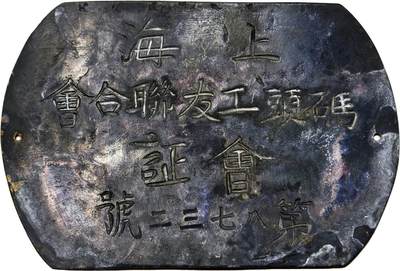 上海
碼頭工友聯合會
會証
第八七三二號